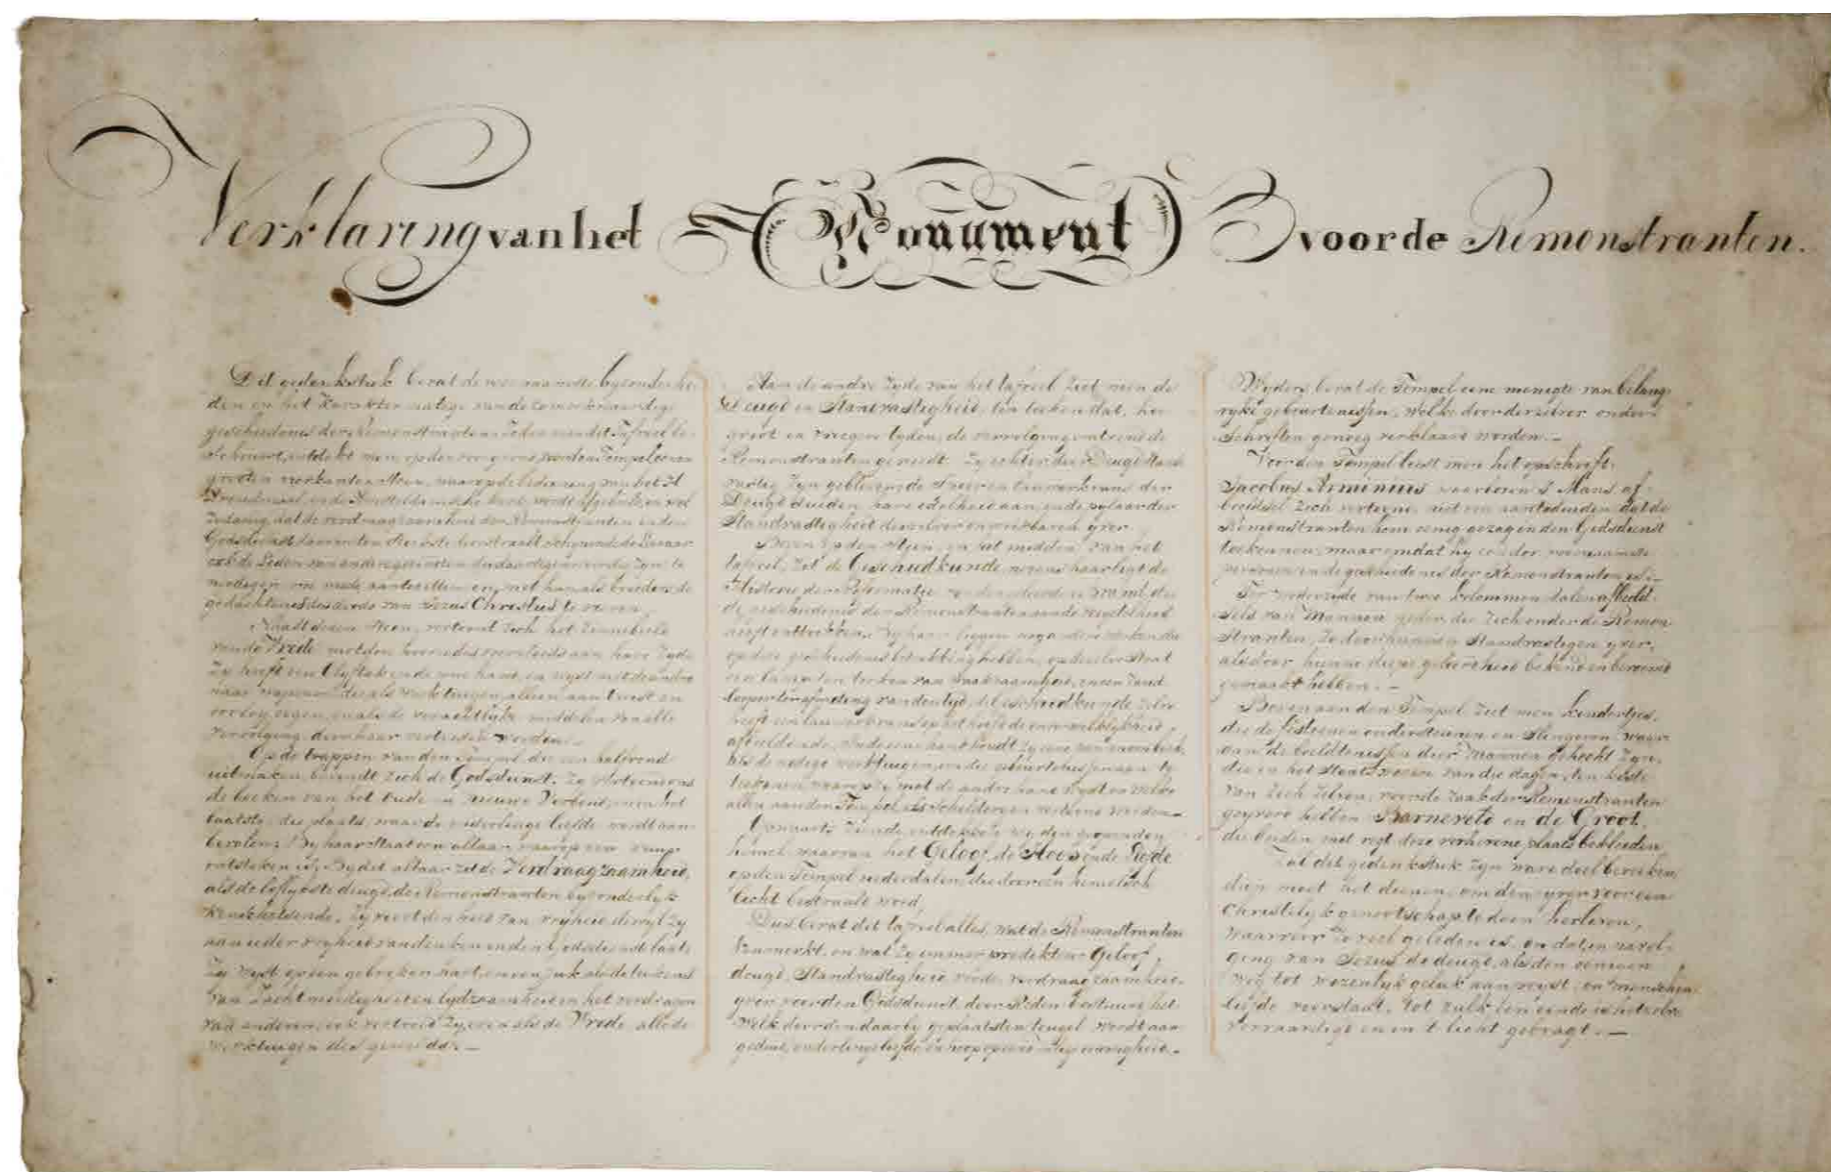 Verklaring van het Monument voor de Remonstranten.
Dit gedenkstuk bevat de voornaamste byzonderhe-
den en het Karakter matige van de
geschiedenis der Remonstranten. Ieder die dit Tafreel be-
schouwt, ontdekt men op den voorgrond
grooten vierkanten Steen, waarop de bediening van het H
Avondmaal
zodanig, dat de
Godsdienst
ook de Leden van andere gezinten
nodigen, om mede aantezitten en met hun als broeders de
gedachtenis des doods van Jezus Christus te vieren.
Naast dezen Steen, vertoont zich het Zinnebeeld
van de Vrede met den hoorn des overvloeds aan hare Zyde
Zy heeft een Olyftak in de eene hand, en wyst met de andre
naar wapenen die als werktuigen alleen aan twist en
oorlog eigen, en als de verachtlyke middelen van alle
vervolging door haar vertreden worden.
Op de trappen van den Tempel die een halvrond
uitmaken bevindt zich de Godsdienst. Zy
de boeken van het Oude en Nieuwe Verbond, in het
laatste, die plaats, waar de onderlinge liefde wordt aan-
bevolen. By haar staat een altaar waarop een vuur
ontstoken is. By dit altaar zit de Verdraagzaamheid,
als de lieflykste deugd, der Remonstranten byzonderlyk
Kenschetsende. Zy voert den hoed van vryheid dewyl Zy
aan ieder vryheid van denken en den Godsdienst laat.
Zy wyst op een gebroken hart, en een juk als de tekens
van Zachtmoedigheid en lydzaamheid in het verdragen
van anderen, ook vertreed Zy even als de Vrede alle de
werktuigen des gewelds. —
Aan de andre Zyde van het tafreel Ziet men de
Deugd en Standvastigheid, ten teeken dat, hoe
groot in vroeger tyden, de vervolging omtrend de
Remonstranten geweest Zy echter der Deugd stand
vastig Zyn gebleven, de
Deugd duiden hare edelheid aan, en de pylaar der
Standvastigheid derzelver onwrikbaren yver.
Boven op den Steen, in het midden van het
tafreel, Zit de Geschiedkunde, nevens haar ligt de
Historie der Reformatie
de geschiedenis der Remonstranten aan de vergetelheid
heeft onttrokken. By haar liggen nog andere werken die
op deze geschiedenis betrekking hebben, ook
een lamp ten teeken van waakzaamheid, en een Zand
looper ten afmeting van den tyd, de Geschiedkunde Zelve
heeft een lauwerkrans op het hoofd de onsterfelykheid
afbeeldende. In de eene hand houdt Zy
als de nodige werktuigen om de gebeurtenissen aan te
teekenen, waarop Zy met de andre hand wyst en welke
allen aan den Tempel als schilderyen vertoond worden. —
Opwaarts Ziende, ontdekken wy den geopenden
hemel waarvan het Geloof, de Hoop en de Liefde
op den Tempel nederdalen, die door een hemelsch
licht bestraald word.
Dus bevat dit tafreel alles, wat de Remonstranten
Kenmerkt, en wat Zy immer predikten: Geloof,
deugd, Standvastigheid, vrede, verdraagzaamheid,
yver voor den Godsdienst, door Reden bestuurd het
welk door den daar by geplaatsten teugel wordt aan-
geduid, onderlinge liefde en hoop op eene Zalige eeuwigheid. —
Wyders bevat de Tempel eene menigte van belang
ryke gebeurtenissen, welke door derzelver onder-
schriften genoeg verklaard worden. —
Voor den Tempel leest men het opschrift
Jacobus Arminius waarboven 's Mans af-
beeldsel zich vertoont, niet om aanteduiden dat de
Remonstranten hem eenig gezag in den Godsdienst
toekennen, maar omdat hy een der voornaamste
personen in de geschiedenis der Remonstranten is. —
Ter wederzide van twee kolommen dalen afbeeld-
sels van Mannen neder, die Zich onder de Remon
stranten, Zo door hunnen Standvastigen yver,
als door hunne diepe geleerdheid bekend en beroemd
gemaakt hebben. —
Boven aan den Tempel Ziet men kindertjes,
die de festoenen ondersteunen en slingeren waar-
aan de beeldtenissen dier Mannen gehecht Zyn,
die in het Staatswezen van die dagen, ten koste
van Zich Zelven, voor de Zaak der Remonstranten
geyverd hebben Barneveld en de Groot,
die beiden met regt deze verhevene plaats bekleeden.
Zal dit gedenkstuk Zyn ware doel bereiken,
dan moet het dienen, om den yver voor een
Christelyk genootschap te doen herleven,
waarvoor Zo veel geleden is, en dat, in navol-
ging van Jezus de deugd, als den eenigen
weg tot wezenlyk geluk aan wyst, en menschen
liefde voorstaat, tot zulk een einde is het zelve
vervaardigd en in 't licht gebragt. —